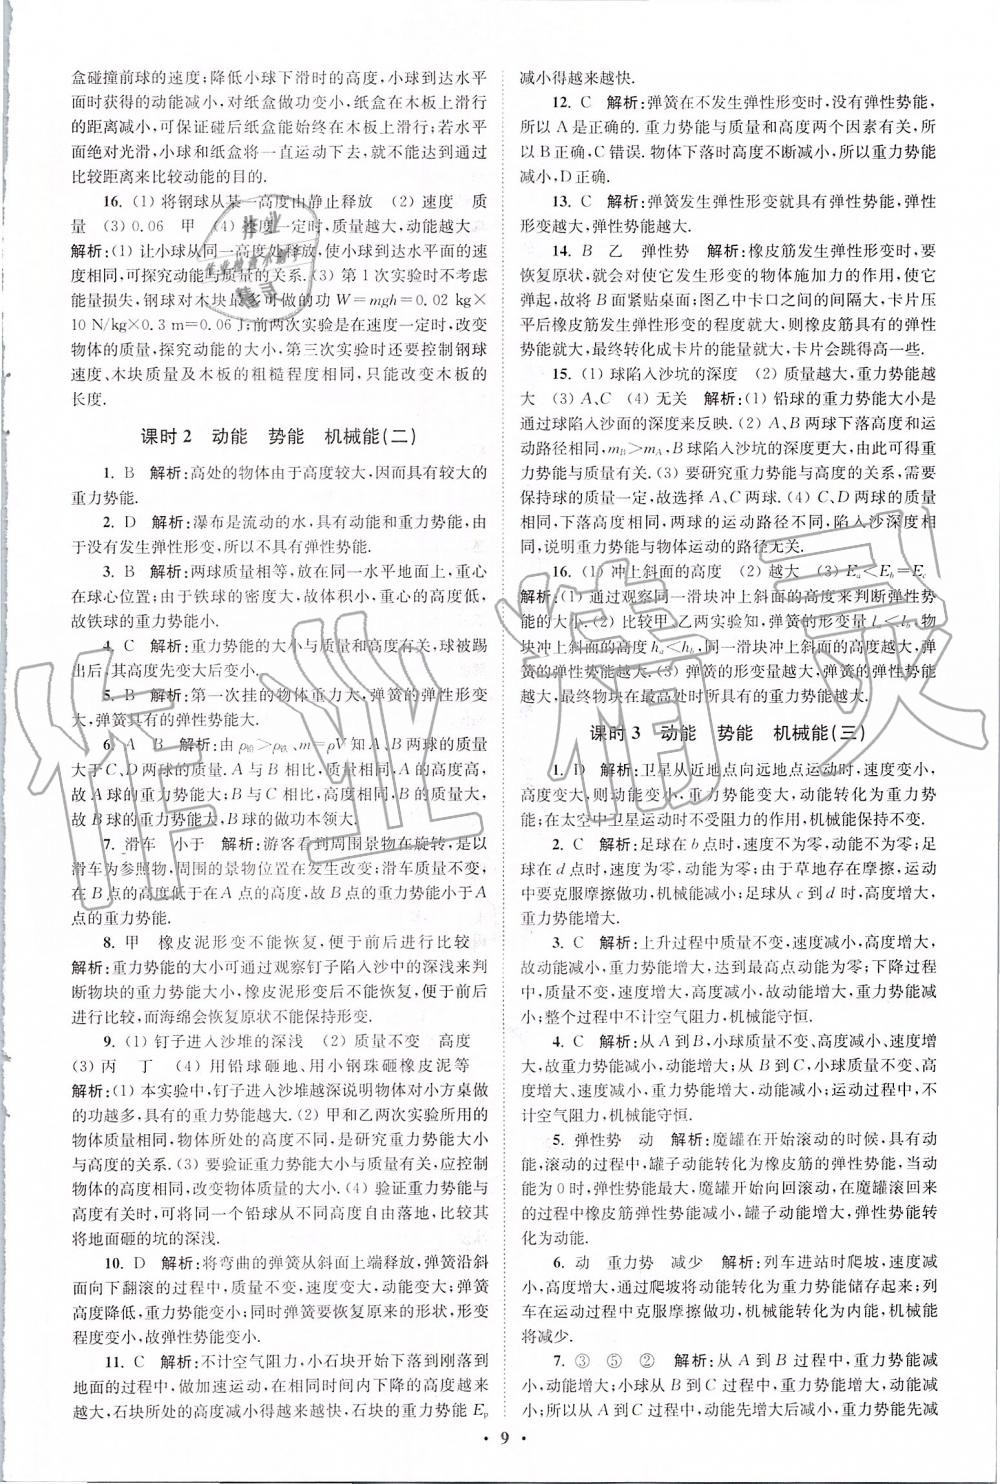 盒碰撞前球的速度;降低小球下滑时的高度,小球到达水平
面时获得的动能减小,对纸盒做功变小,纸盒在木板上滑行
的距离减小,可保证碰后纸盒能始终在木板上滑行;若水平
面绝对光滑,小球和纸盒将一直运动下去,就不能达到通过
比较距离来比较动能的目的.
16. (1) 将钢球从某一高度由静止释放 (2) 速度 质
量 (3) 0.06 甲 (4) 速度一定时,质量越大,动能越大
解析:(1) 让小球从同一高度处释放,使小球到达水平面的速
度相同,可探究动能与质量的关系. (3) 第1次实验时不考虑
能量损失,钢球对木块最多可做的功 W=mgh=0.02 kg×
10 N/kg×0.3 m=0.06 J;前两次实验是在速度一定时,改变
物体的质量,探究动能的大小,第三次实验时还要控制钢球
速度、木块质量及木板的粗糙程度相同,只能改变木板的
长度.
课时2 动能 势能 机械能(二)
1. B 解析:高处的物体由于高度较大,因而具有较大的
重力势能.
2. D 解析:瀑布是流动的水,具有动能和重力势能,由
于没有发生弹性形变,所以不具有弹性势能.
3. B 解析:两球质量相等,放在同一水平地面上,重心
在球心位置;由于铁球的密度大,故体积小,重心的高度低,
故铁球的重力势能小.
4. C 解析:重力势能的大小与质量和高度有关,球被踢
出后,其高度先变大后变小.
5. B 解析:第一次挂的物体重力大,弹簧的弹性形变
大,弹簧具有的弹性势能大.
6. A B 解析:由 ρ铅>ρ铁、m=ρV 知 A、B 两球的质量
大于 C、D 两球的质量. A 与 B 相比,质量相同,A 的高度高,
故 A 球的重力势能大;B 与 C 相比,高度相同,B 的质量大,
故 B 球的重力势能大,B 球的做功本领大.
7. 滑车 小于 解析:游客看到周围景物在旋转,是以
滑车为参照物,周围的景物位置在发生改变;滑车质量不变,
在 B 点的高度低于在 A 点的高度,故 B 点的重力势能小于 A
点的重力势能.
8. 甲 橡皮泥形变不能恢复,便于前后进行比较
解析:重力势能的大小可通过观察钉子陷入沙中的深浅来判
断物块的重力势能大小,橡皮泥形变后不能恢复,便于前后
进行比较,而海绵会恢复原状不能保持形变.
9. (1) 钉子进入沙堆的深浅 (2) 质量不变 高度
(3) 丙 丁 (4) 用铅球砸地、用小钢珠砸橡皮泥等
解析:(1) 本实验中,钉子进入沙堆越深说明物体对小方桌做
的功越多,具有的重力势能越大. (2) 甲和乙两次实验所用的
物体质量相同,物体所处的高度不同,是研究重力势能大小
与高度的关系. (3) 要验证重力势能大小与质量有关,应控制
物体的高度相同,改变物体质量的大小. (4) 验证重力势能与
高度有关时,可将同一个铅球从不同高度自由落地,比较其
将地面砸的坑的深浅.
10. D 解析:将弯曲的弹簧从斜面上端释放,弹簧沿斜
面向下翻滚的过程中,质量不变,速度变大,动能变大;弹簧
高度降低,重力势能变小;同时弹簧要恢复原来的形状,形变
程度变小,故弹性势能变小.
11. C 解析:不计空气阻力,小石块开始下落到刚落到
地面的过程中,做加速运动,在相同时间内下降的高度越来
越大,石块所处的高度减小得越来越快,石块的重力势能 Ep
减小得越来越快.
12. C 解析:弹簧在不发生弹性形变时,没有弹性势能,
所以 A 是正确的. 重力势能与质量和高度两个因素有关,所
以 B 正确,C 错误. 物体下落时高度不断减小,所以重力势能
减小,D 正确.
13. C 解析:弹簧发生弹性形变就具有弹性势能,弹性
形变越大,弹性势能越大.
14. B 乙 弹性势 解析:橡皮筋发生弹性形变时,要
恢复原状,就会对使它发生形变的物体施加力的作用,使它
弹起,故将 B 面紧贴桌面;图乙中卡口之间的间隔大,卡片压
平后橡皮筋发生弹性形变的程度就大,则橡皮筋具有的弹性
势能就大,最终转化成卡片的动能就大,卡片会跳得高一些.
15. (1) 球陷入沙坑的深度 (2) 质量越大,重力势能越
大 (3) A、C (4) 无关 解析:(1) 铅球的重力势能大小是
通过球陷入沙面的深度来反映. (2) A、B 两球下落高度和运
动路径相同,mB>mA,B 球陷入沙坑的深度更大,由此可得重
力势能与质量有关. (3) 要研究重力势能与高度的关系,需要
保持球的质量一定,故选择 A、C 两球. (4) C、D 两球的质量
相同,下落高度相同,两球的运动路径不同,陷入沙深度相
同,说明重力势能与物体运动的路径无关.
16. (1) 冲上斜面的高度 (2) 越大 (3) Ea<Eb=Ec
解析:(1) 通过观察同一滑块冲上斜面的高度来判断弹性势
能的大小. (2) 比较甲、乙两实验知,弹簧的形变量 la<lb,物
块冲上斜面的高度 ha<hb,同一滑块冲上斜面的高度越大,弹
簧的弹性势能越大. (3) 弹簧的形变量越大,弹簧的弹性势能
越大,最终物块在最高处时所具有的重力势能越大.
课时3 动能 势能 机械能(三)
1. D 解析:卫星从近地点向远地点运动时,速度变小,
高度变大,则动能变小,重力势能变大,动能转化为重力势
能;在太空中卫星运动时不受阻力的作用,机械能不变.
2. C 解析:足球在 b 点时,速度不为零,动能不为零;足
球在 d 点时,速度为零,动能为零;由于草地存在摩擦,运动
中要克服摩擦做功,机械能减小;足球从 c 到 d 时,高度增大,
重力势能增大.
3. C 解析:上升过程中质量不变,速度减小,高度增大,
故动能减小,重力势能增大,达到最高点动能为零;下降过程
中,质量不变,速度增大,高度减小,故动能增大,重力势能减
小;整个过程中不计空气阻力,机械能守恒.
4. C 解析:从 A 到 B,小球质量不变、高度减小、速度增
大,重力势能减小,动能增大;从 B 到 C,小球质量不变、高度
增大、速度减小,重力势能增大,动能减小;运动过程中,不
计空气阻力,机械能守恒.
5. 弹性势 动 解析:魔罐在开始滚动的时候,具有动
能,滚动的过程中,罐子动能转化为橡皮筋的弹性势能,当动
能为0时,弹性势能最大,魔罐开始向回滚动,在魔罐滚回来
的过程中橡皮筋弹性势能减小,罐子动能增大,弹性势能转
化为动能.
6. 动 重力势 减少 解析:列车进站时爬坡,速度减
小,高度增大,通过爬坡将动能转化为重力势能储存起来;列
车在运动过程中克服摩擦做功,机械能转化为内能,机械能
将减少.
7. ③ ⑤ ② 解析:从 A 到 B 过程中,重力势能减
小,动能增大;小球从 B 到 C 过程中,重力势能增大,动能减
小;所以从 A 到 C 过程中,动能先增大后减小,重力势能先减
• 9 •
作业精灵